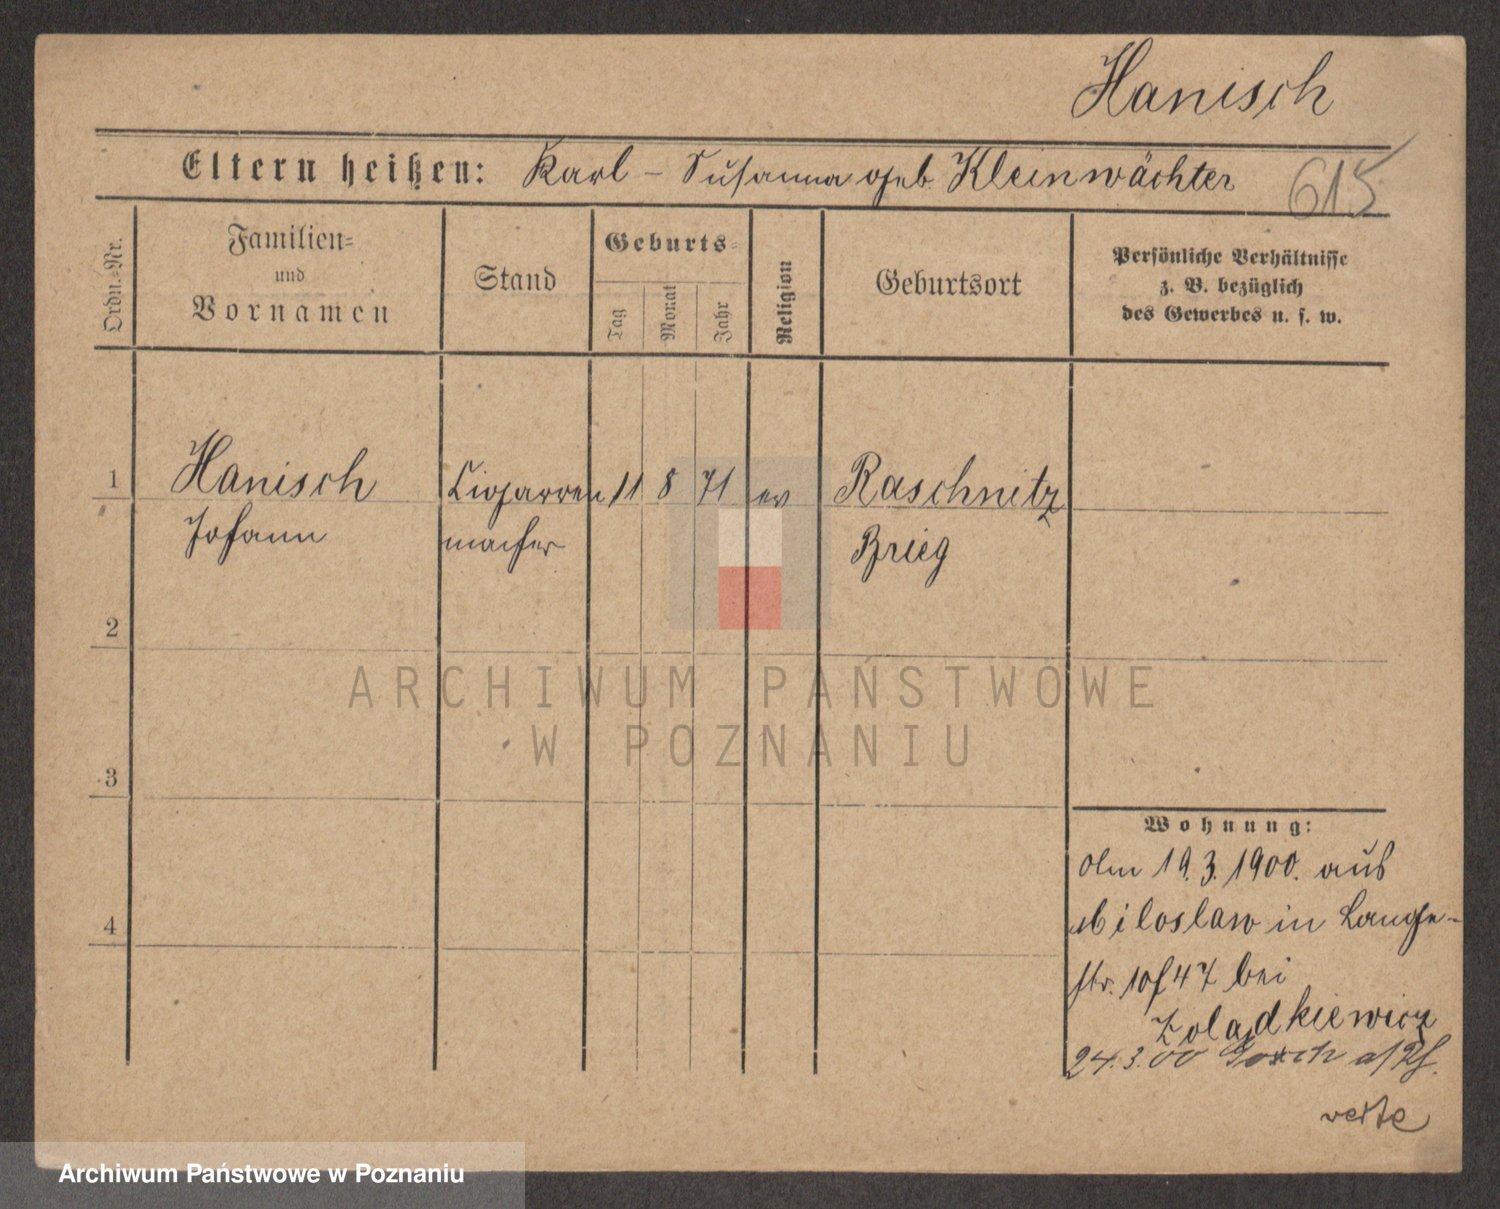 Hanisch
Eltern heißen: Karl - Susanna geb. Kleinwächter 615
Ordn.-Nr.
Familien-
und
Vornamen
Stand
Geburts-
Tag
Monat
Jahr
Religion
Geburtsort
Persönliche Verhältnisse
z. B. bezüglich
des Gewerbes u. s. w.
1 Hanisch Cigarren 11 8 71 ev Raschnitz
Johann macher Brieg
2
3
4
Wohnung:
Am 19.3.1900. aus
Miloslaw in Lange-
str. 10 f 47 bei
Zoladkiewicz
24.3.00
ARCHIWUM PAŃSTWOWE
W POZNANIU
Archiwum Państwowe w Poznaniu